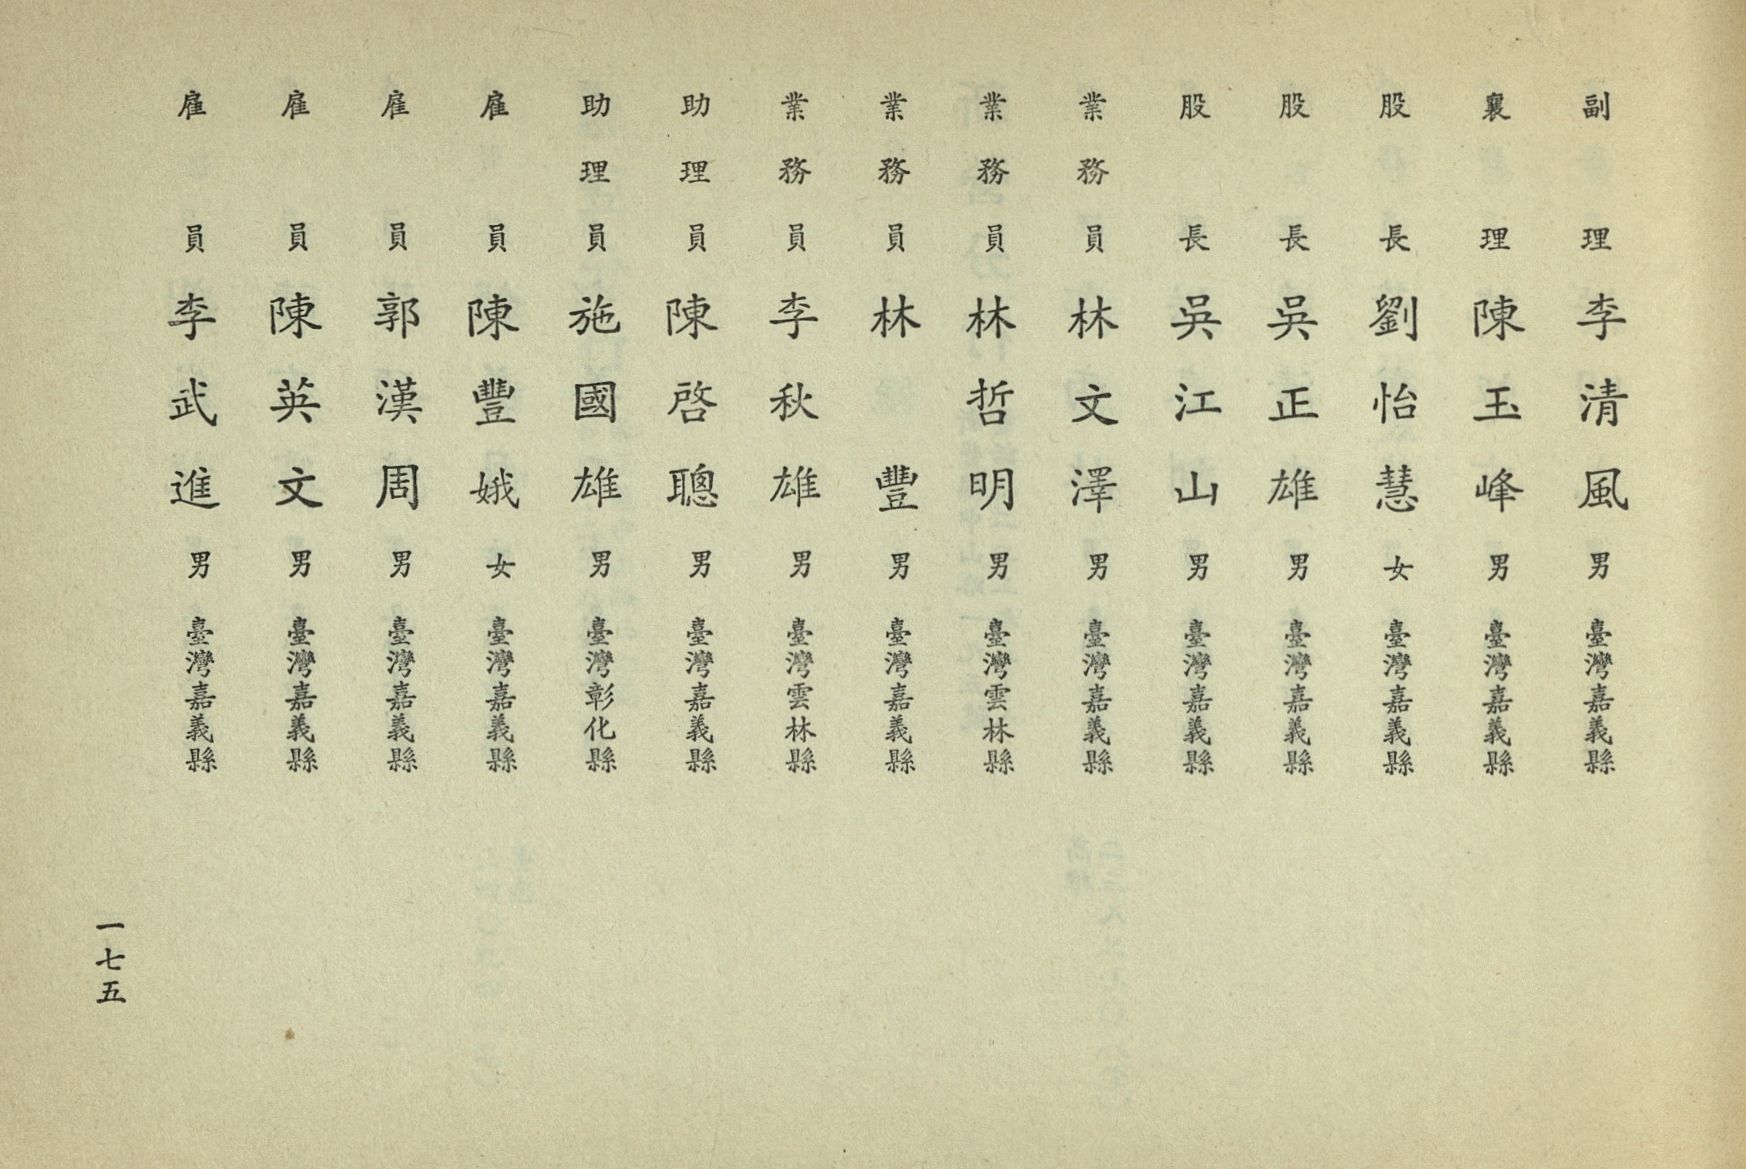 副理李清風男臺灣嘉義縣
襄理陳玉峰男臺灣嘉義縣
股長劉怡慧女臺灣嘉義縣
股長吳正雄男臺灣嘉義縣
股長吳江山男臺灣嘉義縣
業務員林文澤男臺灣嘉義縣
業務員林哲明男臺灣雲林縣
業務員林豐男臺灣嘉義縣
業務員李秋雄男臺灣雲林縣
助理員陳啓聰男臺灣嘉義縣
助理員施國雄男臺灣彰化縣
雇員陳豐娥女臺灣嘉義縣
雇員郭漢周男臺灣嘉義縣
雇員陳英文男臺灣嘉義縣
雇員李武進男臺灣嘉義縣
一七五